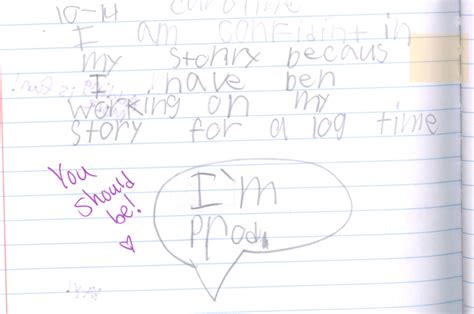 10-14 caroline
I am confidint in
my stonrx becaus
I have ben
working on my
story for a log time
You
should
be!
I'm
prod